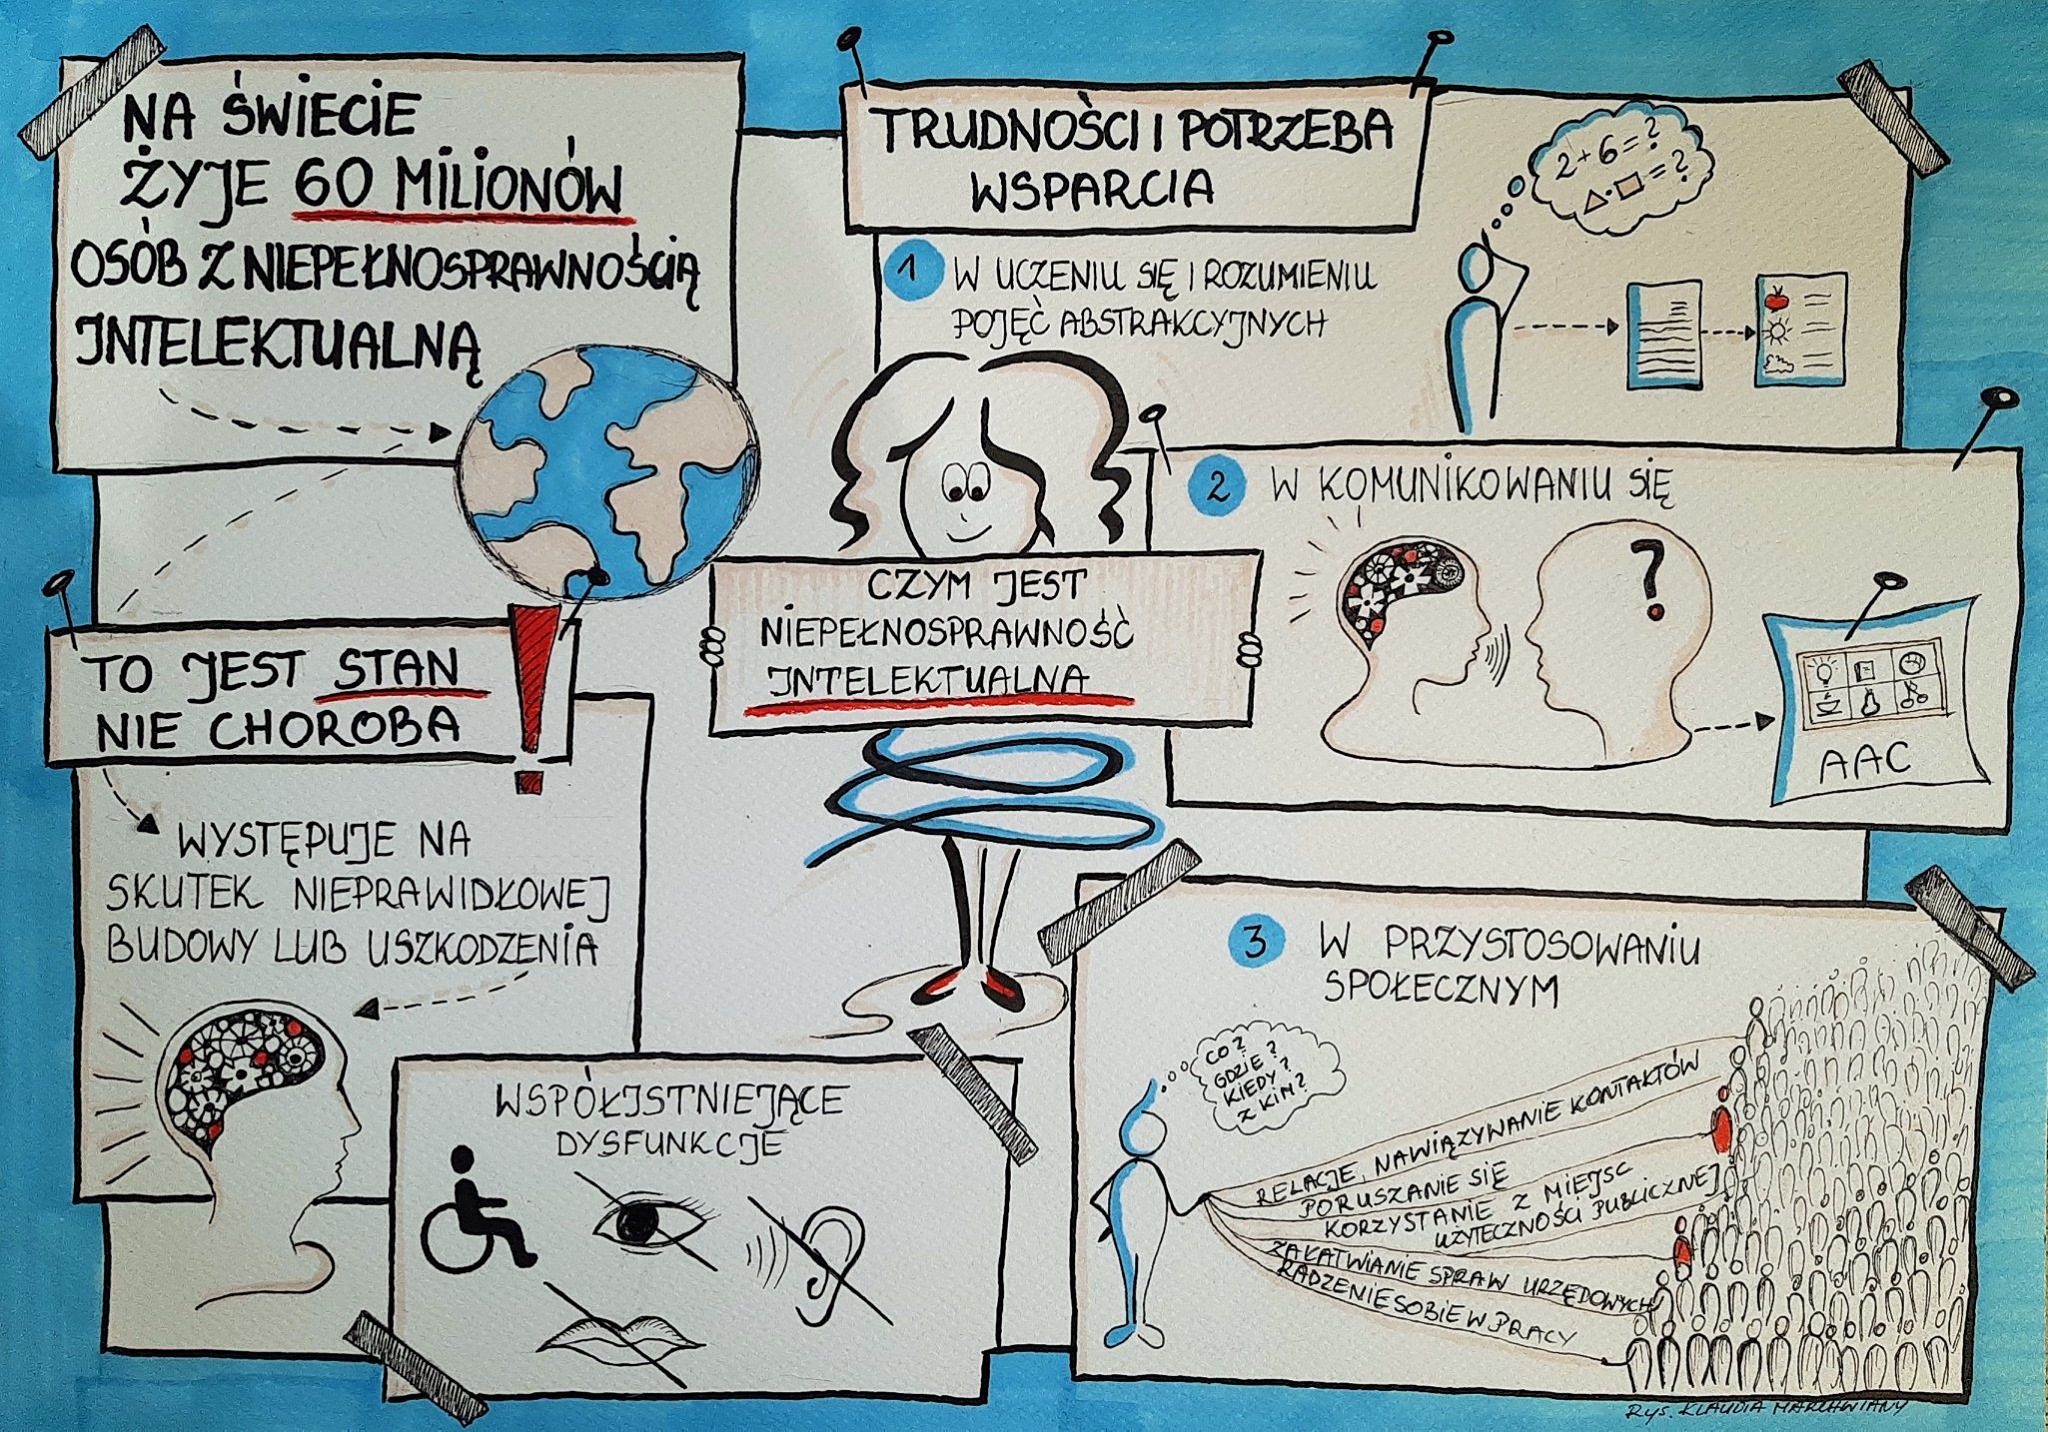 NA ŚWIECIE
ŻYJE 60 MILIONÓW
OSÓB Z NIEPEŁNOSPRAWNOŚCIĄ
INTELEKTUALNĄ
TO JEST STAN
NIE CHOROBA
!
WYSTĘPUJE NA
SKUTEK NIEPRAWIDŁOWEJ
BUDOWY LUB USZKODZENIA
WSPÓŁISTNIEJĄCE
DYSFUNKCJE
CZYM JEST
NIEPEŁNOSPRAWNOŚĆ
INTELEKTUALNA
TRUDNOŚCI I POTRZEBA
WSPARCIA
1 W UCZENIU SIĘ I ROZUMIENIU
POJĘĆ ABSTRAKCYJNYCH
2+6=?
=?
2 W KOMUNIKOWANIU SIĘ
?
AAC
3 W PRZYSTOSOWANIU
SPOŁECZNYM
CO?
GDZIE?
KIEDY?
Z KIM?
RELACJE, NAWIĄZYWANIE KONTAKTÓW
PORUSZANIE SIĘ
KORZYSTANIE Z MIEJSC
UŻYTECZNOŚCI PUBLICZNEJ
ZAŁATWIANIE SPRAW URZĘDOWYCH
RADZENIE SOBIE W PRACY
RYS. KLAUDIA MARCHWIANY